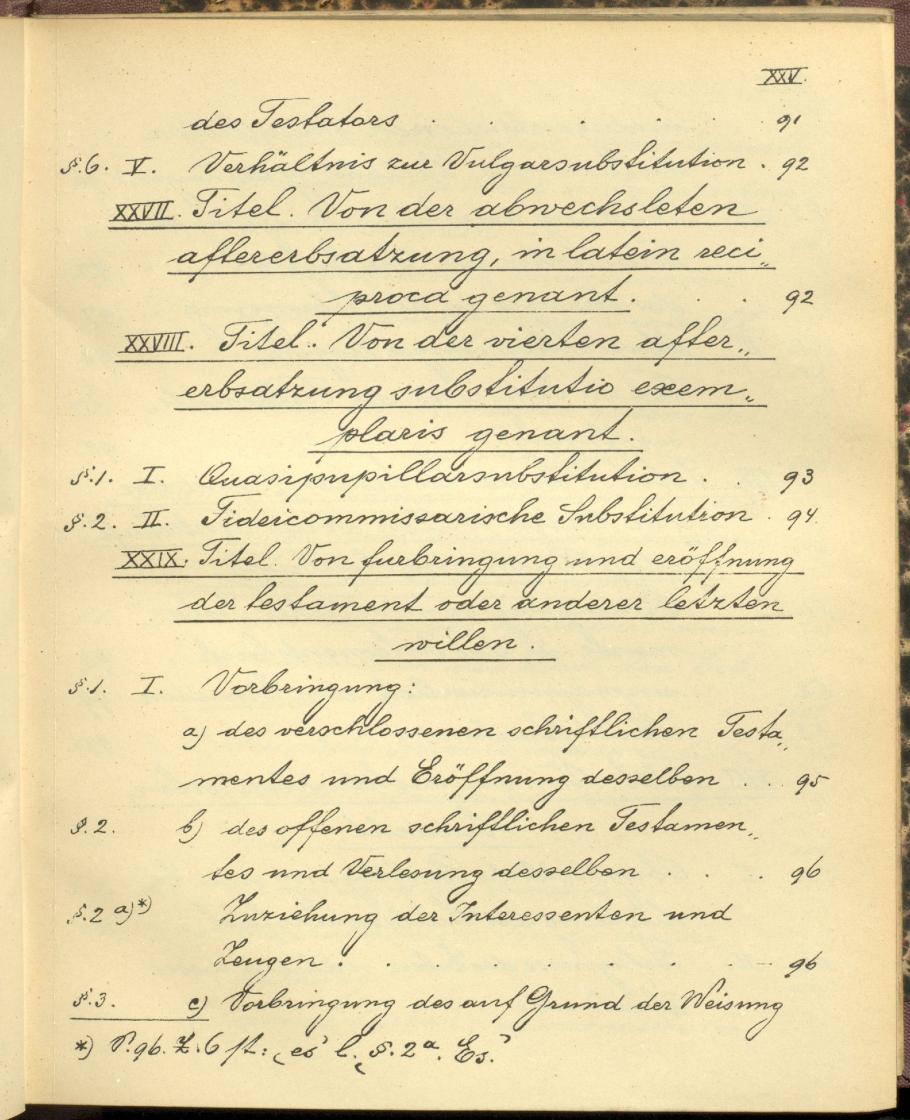 XXV.
des Testators . . . . . 91
§.6. V. Verhältnis zur Vulgarsubstitution . 92
XXVII. Titel. Von der abwechsleten
aftererbsatzung, in latein reci„
proca genant. . . 92
XXVIII. Titel. Von der vierten after„
erbsatzung substitutio exem„
plaris genant.
§.1. I. Quasipupillarsubstitution . . 93
§.2. II. Fideicommissarische Substitution . 94.
XXIX. Titel. Von furbringung und eröffnung
der testament oder anderer letzten
willen.
§.1. I. Vorbringung:
a) des verschlossenen schriftlichen Testa„
mentes und Eröffnung desselben . . . 95
§.2. b) des offenen schriftlichen Testamen„
tes und Verlesung desselben . . . 96
§.2 a)*) Zuziehung der Interessenten und
Zeugen . . . . . 96
§.3. c) Vorbringung des auf Grund der Weisung
*) P. 96. Z. 6 st: ‚es’ l. ‚§. 2a. Es.’